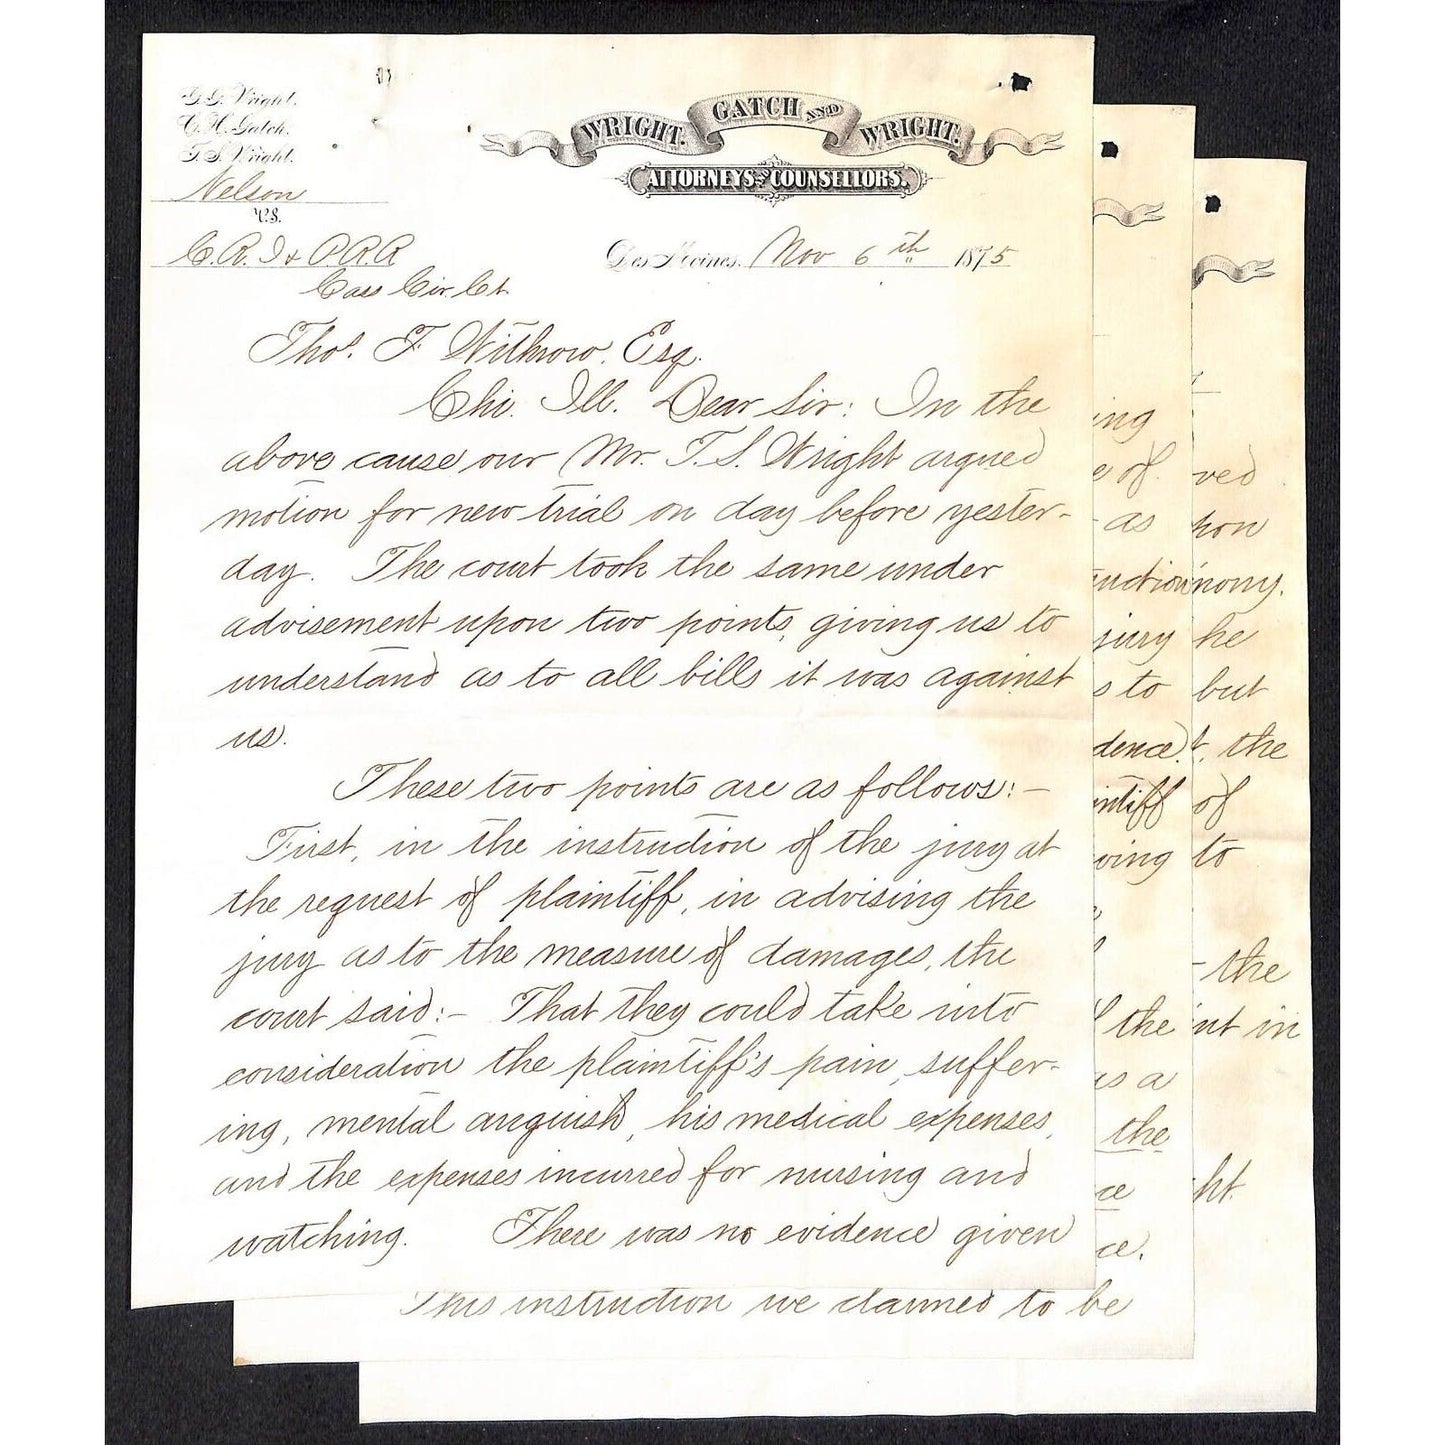 G. G. Wright.
C. H. Gatch.
T. S. Wright.
WRIGHT. GATCH AND WRIGHT.
ATTORNEYS AND COUNSELLORS.
Nelson
vs.
C. R. I & P. R. R
Cass Cir. Ct.
Des Moines. Nov 6th 1875
Thos. F Withrow. Esq.
Chi. Ill. Dear Sir: In the
above cause our Mr. T. S. Wright argued
motion for new trial on day before yester-
day. The court took the same under
advisement upon two points, giving us to
understand as to all bills it was against
us.
These two points are as follows:-
First, in the instruction of the jury at
the request of plaintiff, in advising the
jury as to the measure of damages, the
court said:- That they could take into
consideration the plaintiff's pain, suffer-
ing, mental anguish, his medical expenses,
and the expenses incurred for nursing and
watching. There was no evidence given
This instruction we claimed to be
ing
e of
- as
uction
jury
s to
dence.
intiff
wing
the
as a
the
ce
ce.
ved
pon
mony.
he
but
t, the
of
to
- the
nt in
ht.